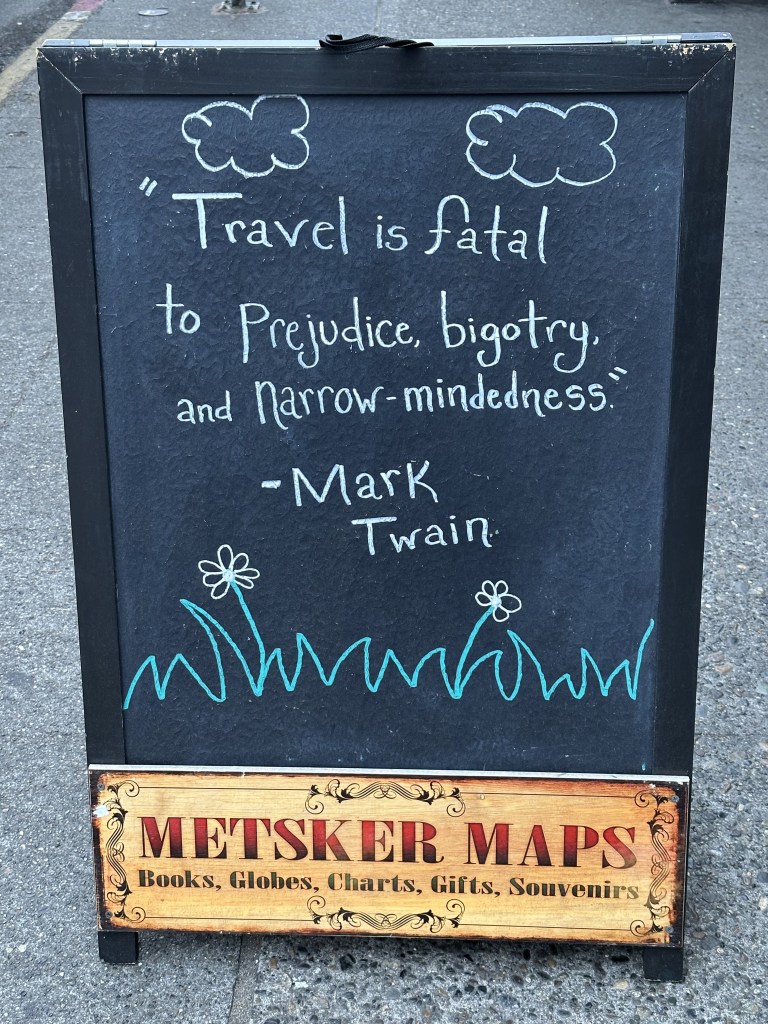 "Travel is fatal
to Prejudice, bigotry,
and narrow-mindedness."
-Mark
Twain.
METSKER MAPS
Books, Globes, Charts, Gifts, Souvenirs